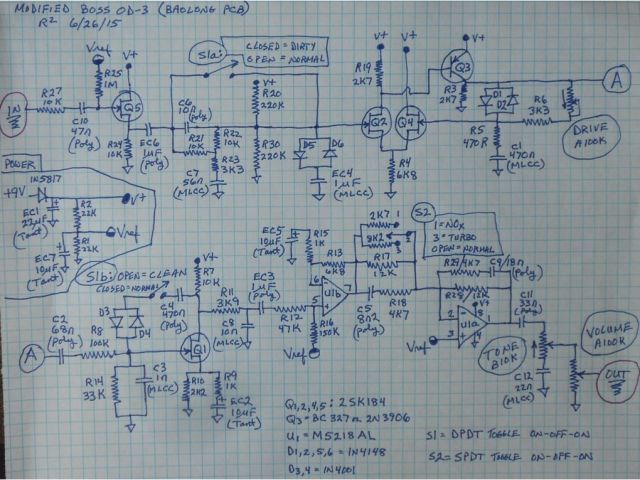 MODIFIED BOSS OD-3 (BAOLONG PCB)
R² 6/26/15
S1a:
CLOSED = DIRTY
OPEN = NORMAL
Vref
R25
1M
IN
R27
10K
C10
47n
(Poly)
V+
Q5
R24
10K
EC6
1µF
(Poly)
C6
10n
(Poly)
R21
10K
R22
10K
R23
3K3
C7
56n
(MLCC)
V+
R20
220K
R30
220K
D5
D6
EC4
1µF
(MLCC)
V+
V+
R19
2K7
Q2
Q4
R4
6K8
V+
Q3
R3
2K7
D1
D2
R5
470R
C1
470n
(MLCC)
R6
3K3
A
DRIVE
A100K
POWER
+9V
1N5817
V+
EC1
22µF
(Tant)
R2
22K
Vref
EC7
10µF
(Tant)
R1
22K
S1b:
OPEN = CLEAN
CLOSED = NORMAL
D3
D4
C4
470n
(Poly)
V+
R7
10K
R11
3K9
C8
10n
(MLCC)
EC3
1µF
(Poly)
A
C2
68n
(Poly)
R8
100K
R14
33K
C3
1n
(MLCC)
Q1
R10
2K2
R9
1K
EC2
10µF
(Tant)
R12
47K
EC5
10µF
(Tant)
R15
1K
R13
6K8
6
5
7
U1b
R16
150K
Vref
2K7
1
8K2
3
R17
12K
S2
1 = NOX
3 = TURBO
OPEN = NORMAL
C5
8n2
(Poly)
R18
4K7
R29/4K7
C9/18n
(Poly)
R28
12K
V+
8
2
3
4
1
U1a
Vref
C11
33n
(Poly)
TONE
B10K
C12
22n
(MLCC)
VOLUME
A100K
OUT
Q1,2,4,5: 2SK184
Q3 = BC327 or 2N3906
U1 = M5218AL
D1,2,5,6 = 1N4148
D3,4 = 1N4001
S1 = DPDT TOGGLE ON-OFF-ON
S2 = SPDT TOGGLE ON-OFF-ON